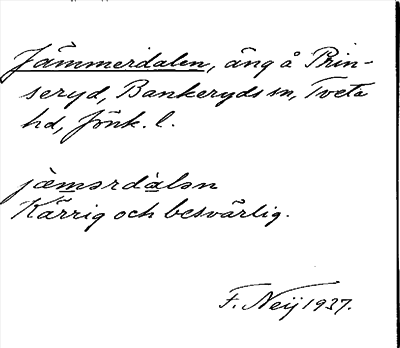 Jämmerdalen, äng å Prin-
seryd, Bankeryds sn, Tveta
hd, Jönk. l.
jæmərdàlən
Kärrig och besvärlig.
F. Neij 1937.